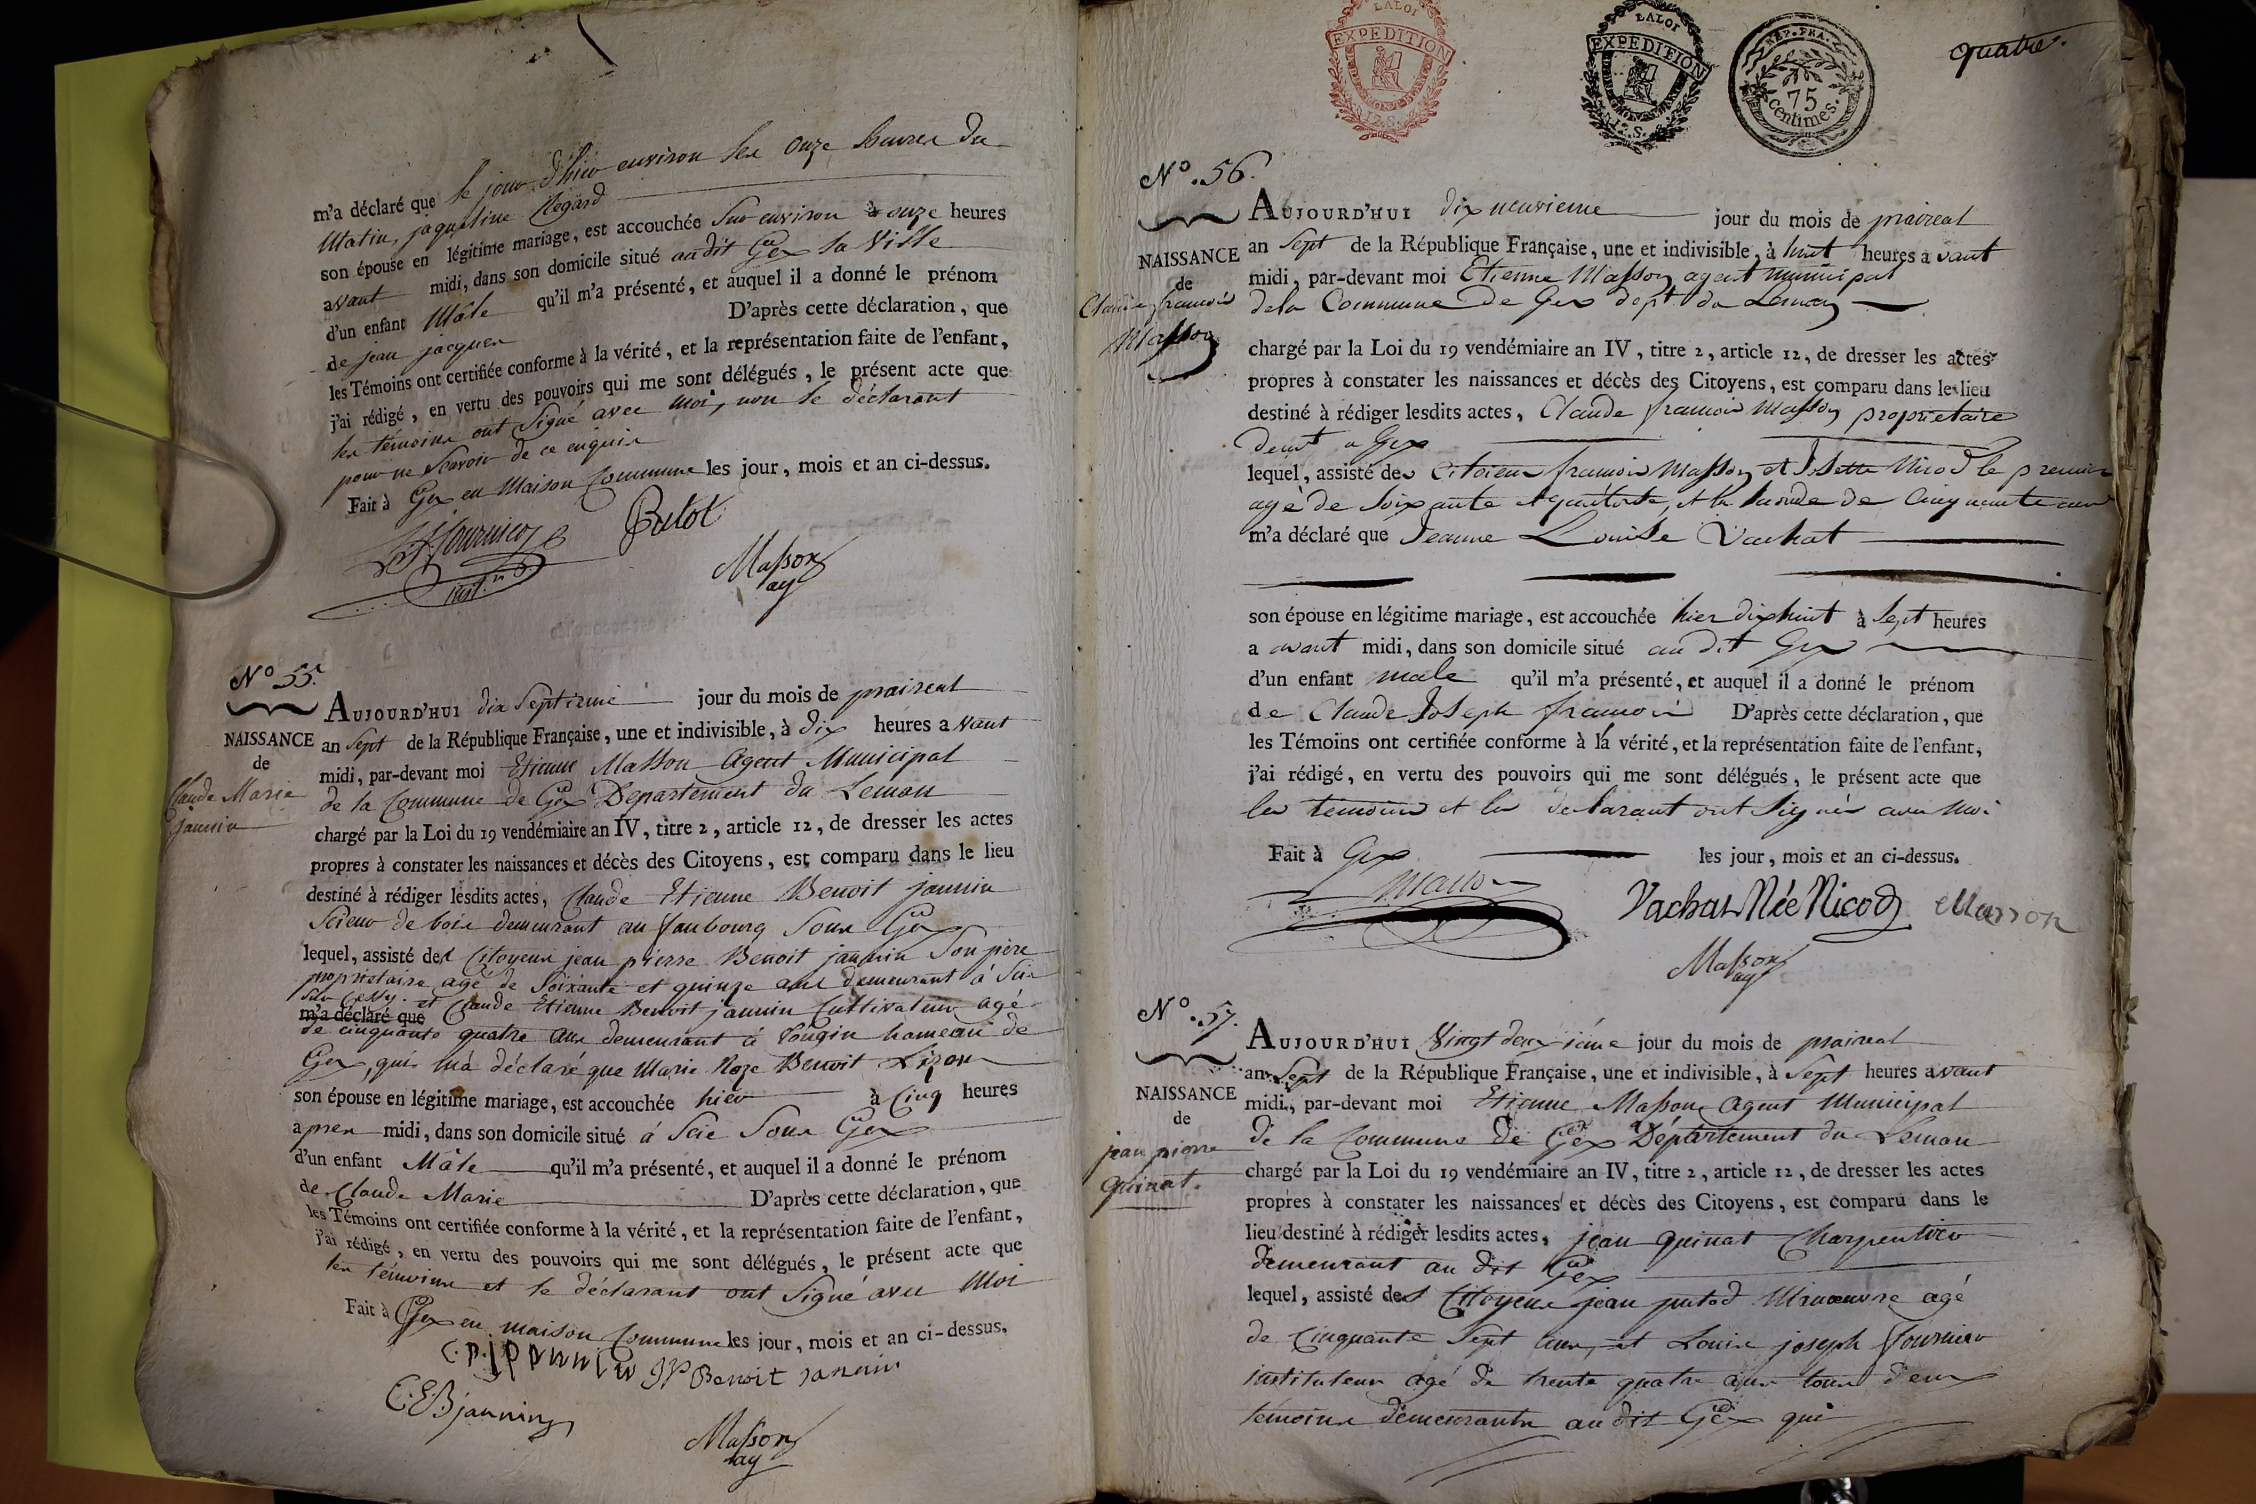 m'a déclaré que le jour d'hier environ les onze heures du
Matin, jaqueline Régard
son épouse en légitime mariage, est accouchée sur environ à onze heures
avant midi, dans son domicile situé audit Gex la Ville
d'un enfant Mâle qu'il m'a présenté, et auquel il a donné le prénom
de jean jacques D'après cette déclaration, que
les Témoins ont certifiée conforme à la vérité, et la représentation faite de l'enfant,
j'ai rédigé, en vertu des pouvoirs qui me sont délégués, le présent acte que
les témoins ont signé avec moi, non le déclarant
pour ne scavoir de ce enquis
Fait à Gex en Maison Commune les jour, mois et an ci-dessus.
fournier
inst.r
Masson
ag
N.o 55.
NAISSANCE
de
Claude Marie
jannin
AUJOURD'HUI dix septieme jour du mois de praireal
an sept de la République Française, une et indivisible, à dix heures avant
midi, par-devant moi Etienne Masson Agent Municipal
de la Commune de Gex Département du Leman
chargé par la Loi du 19 vendémiaire an IV, titre 2, article 12, de dresser les actes
propres à constater les naissances et décès des Citoyens, est comparu dans le lieu
destiné à rédiger lesdits actes, Claude Etienne Benoit jannin
Scieur de bois demeurant au faubourg sous Gex
lequel, assisté des Citoyens jean pierre Benoit jannin son père
proprietaire agé de soixante et quinze ans demeurant à
sur Cessy. et Claude Etienne Benoit jannin Cultivateur agé
m'a déclaré que
de cinquante quatre ans demeurant à Tougin hameau de
Gex, qui m'a déclaré que Marie Roze Benoit Lizon
son épouse en légitime mariage, est accouchée hier à Cinq heures
apres midi, dans son domicile situé à Scie Sous Gex
d'un enfant Mâle qu'il m'a présenté, et auquel il a donné le prénom
de Claude Marie D'après cette déclaration, que
les Témoins ont certifiée conforme à la vérité, et la représentation faite de l'enfant,
j'ai rédigé, en vertu des pouvoirs qui me sont délégués, le présent acte que
les témoins et le déclarant ont signé avec Moi
Fait à Gex en maison Commune les jour, mois et an ci-dessus.
JP Benoit janain
C:EBjannin
Masson
ag
LA LOI
EXPEDITION
12.S.
LA LOI
EXPEDITION
12.S.
REP. FRA.
75
centimes.
quatre.
N.o 56.
NAISSANCE
de
Claude francois
Masson
AUJOURD'HUI dix neuvieme jour du mois de praireal
an Sept de la République Française, une et indivisible, à huit heures avant
midi, par-devant moi Etienne Masson agent municipal
dela Commune de Gex dept du Leman
chargé par la Loi du 19 vendémiaire an IV, titre 2, article 12, de dresser les actes
propres à constater les naissances et décès des Citoyens, est comparu dans le lieu
destiné à rédiger lesdits actes, Claude francois Masson proprietaire
demt a Gex
lequel, assisté des Citoiens francois Masson et Josette Nicod le premier
agé de soixante et quatorze, et la seconde de Cinquante ans
m'a déclaré que Jeanne Louise Vachat
son épouse en légitime mariage, est accouchée hier dixhuit à sept heures
a avant midi, dans son domicile situé au dit Gex
d'un enfant male qu'il m'a présenté, et auquel il a donné le prénom
de Claude Joseph francois D'après cette déclaration, que
les Témoins ont certifiée conforme à la vérité, et la représentation faite de l'enfant,
j'ai rédigé, en vertu des pouvoirs qui me sont délégués, le présent acte que
les temoins et les declarant ont signés avec moi
Fait à Gex les jour, mois et an ci-dessus.
Masson Vachat Née Nicod Masson
Masson
ag
N.o 57.
NAISSANCE
de
jean pierre
quinat.
AUJOURD'HUI Vingt deuxiéme jour du mois de praireal
an Sept de la République Française, une et indivisible, à Sept heures avant
midi, par-devant moi Etienne Masson Agent Municipal
de la Commune de Gex Département du Leman
chargé par la Loi du 19 vendémiaire an IV, titre 2, article 12, de dresser les actes
propres à constater les naissances et décès des Citoyens, est comparu dans le
lieu destiné à rédiger lesdits actes, jean quinat Charpentier
demeurant au dit Gex
lequel, assisté des Citoyens jean putod Manœuvre agé
de Cinquante Sept ans, et Louis joseph fournier
instituteur agé de trente quatre ans tous deux
témoins demeurants au dit Gex qui